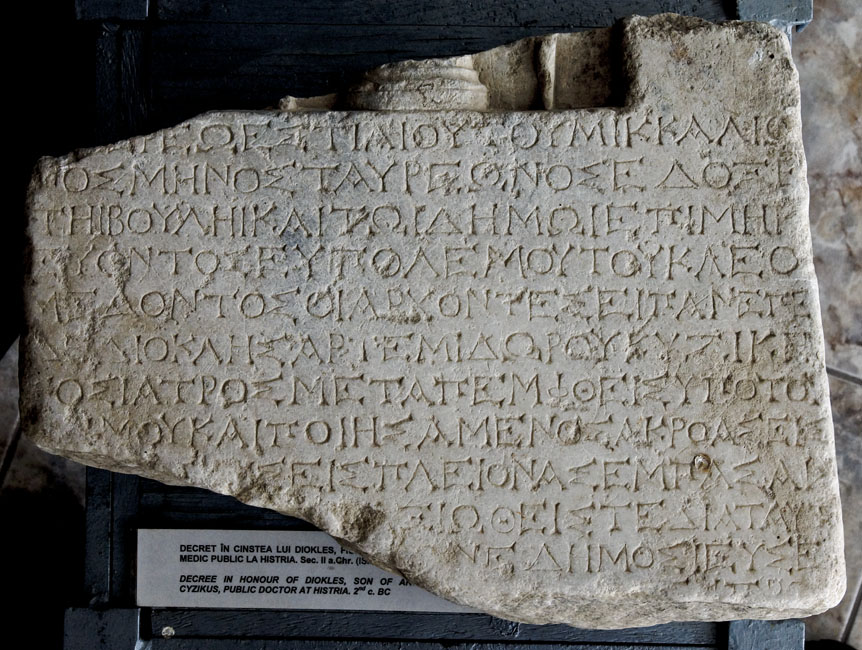 ΤΕΩΕΣΤΙΑΙΟΥΤΟΥΜΙΚΚΑΛΙΩ
ΟΣΜΗΝΟΣΤΑΥΡΕΩΝΟΣΕΔΟΞΕ
ΤΗΙΒΟΥΛΗΙΚΑΙΤΩΙΔΗΜΩΙΕΠΙΜΗΝ
ΕΥΟΝΤΟΣΕΥΠΟΛΕΜΟΥΤΟΥΚΛΕΟ
ΜΕΔΟΝΤΟΣΟΙΑΡΧΟΝΤΕΣΕΙΠΑΝΕΠΕ
ΔΙΟΚΛΗΣΑΡΤΕΜΙΔΩΡΟΥΚΥΖΙΚΗ
ΟΣΙΑΤΡΟΣΜΕΤΑΠΕΜΦΘΕΙΣΥΠΟΤΟΥ
ΜΟΥΚΑΙΠΟΙΗΣΑΜΕΝΟΣΑΚΡΟΑΣΕΙΣ
ΣΕΙΣΠΛΕΙΟΝΑΣΕΜΠΑΣΑΙ
ΞΙΩΘΕΙΣΤΕΔΙΑΤΑΥ
ΔΗΜΟΣΙΕΥΣΕ
DECRET ÎN CINSTEA LUI DIOKLES,
MEDIC PUBLIC LA HISTRIA. Sec. II a.Chr.
DECREE IN HONOUR OF DIOKLES, SON OF
CYZIKUS, PUBLIC DOCTOR AT HISTRIA. 2nd c. BC